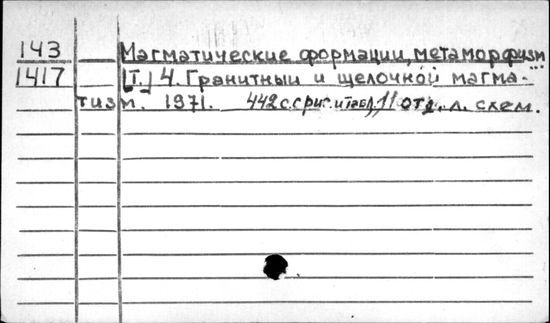 143 Магматические формации, метаморфизм...
1417 [Т.] 4. Гранитный и щелочной магма-
тизм. 1971. 442 с. с рис. и табл., 11 отд. л. схем.